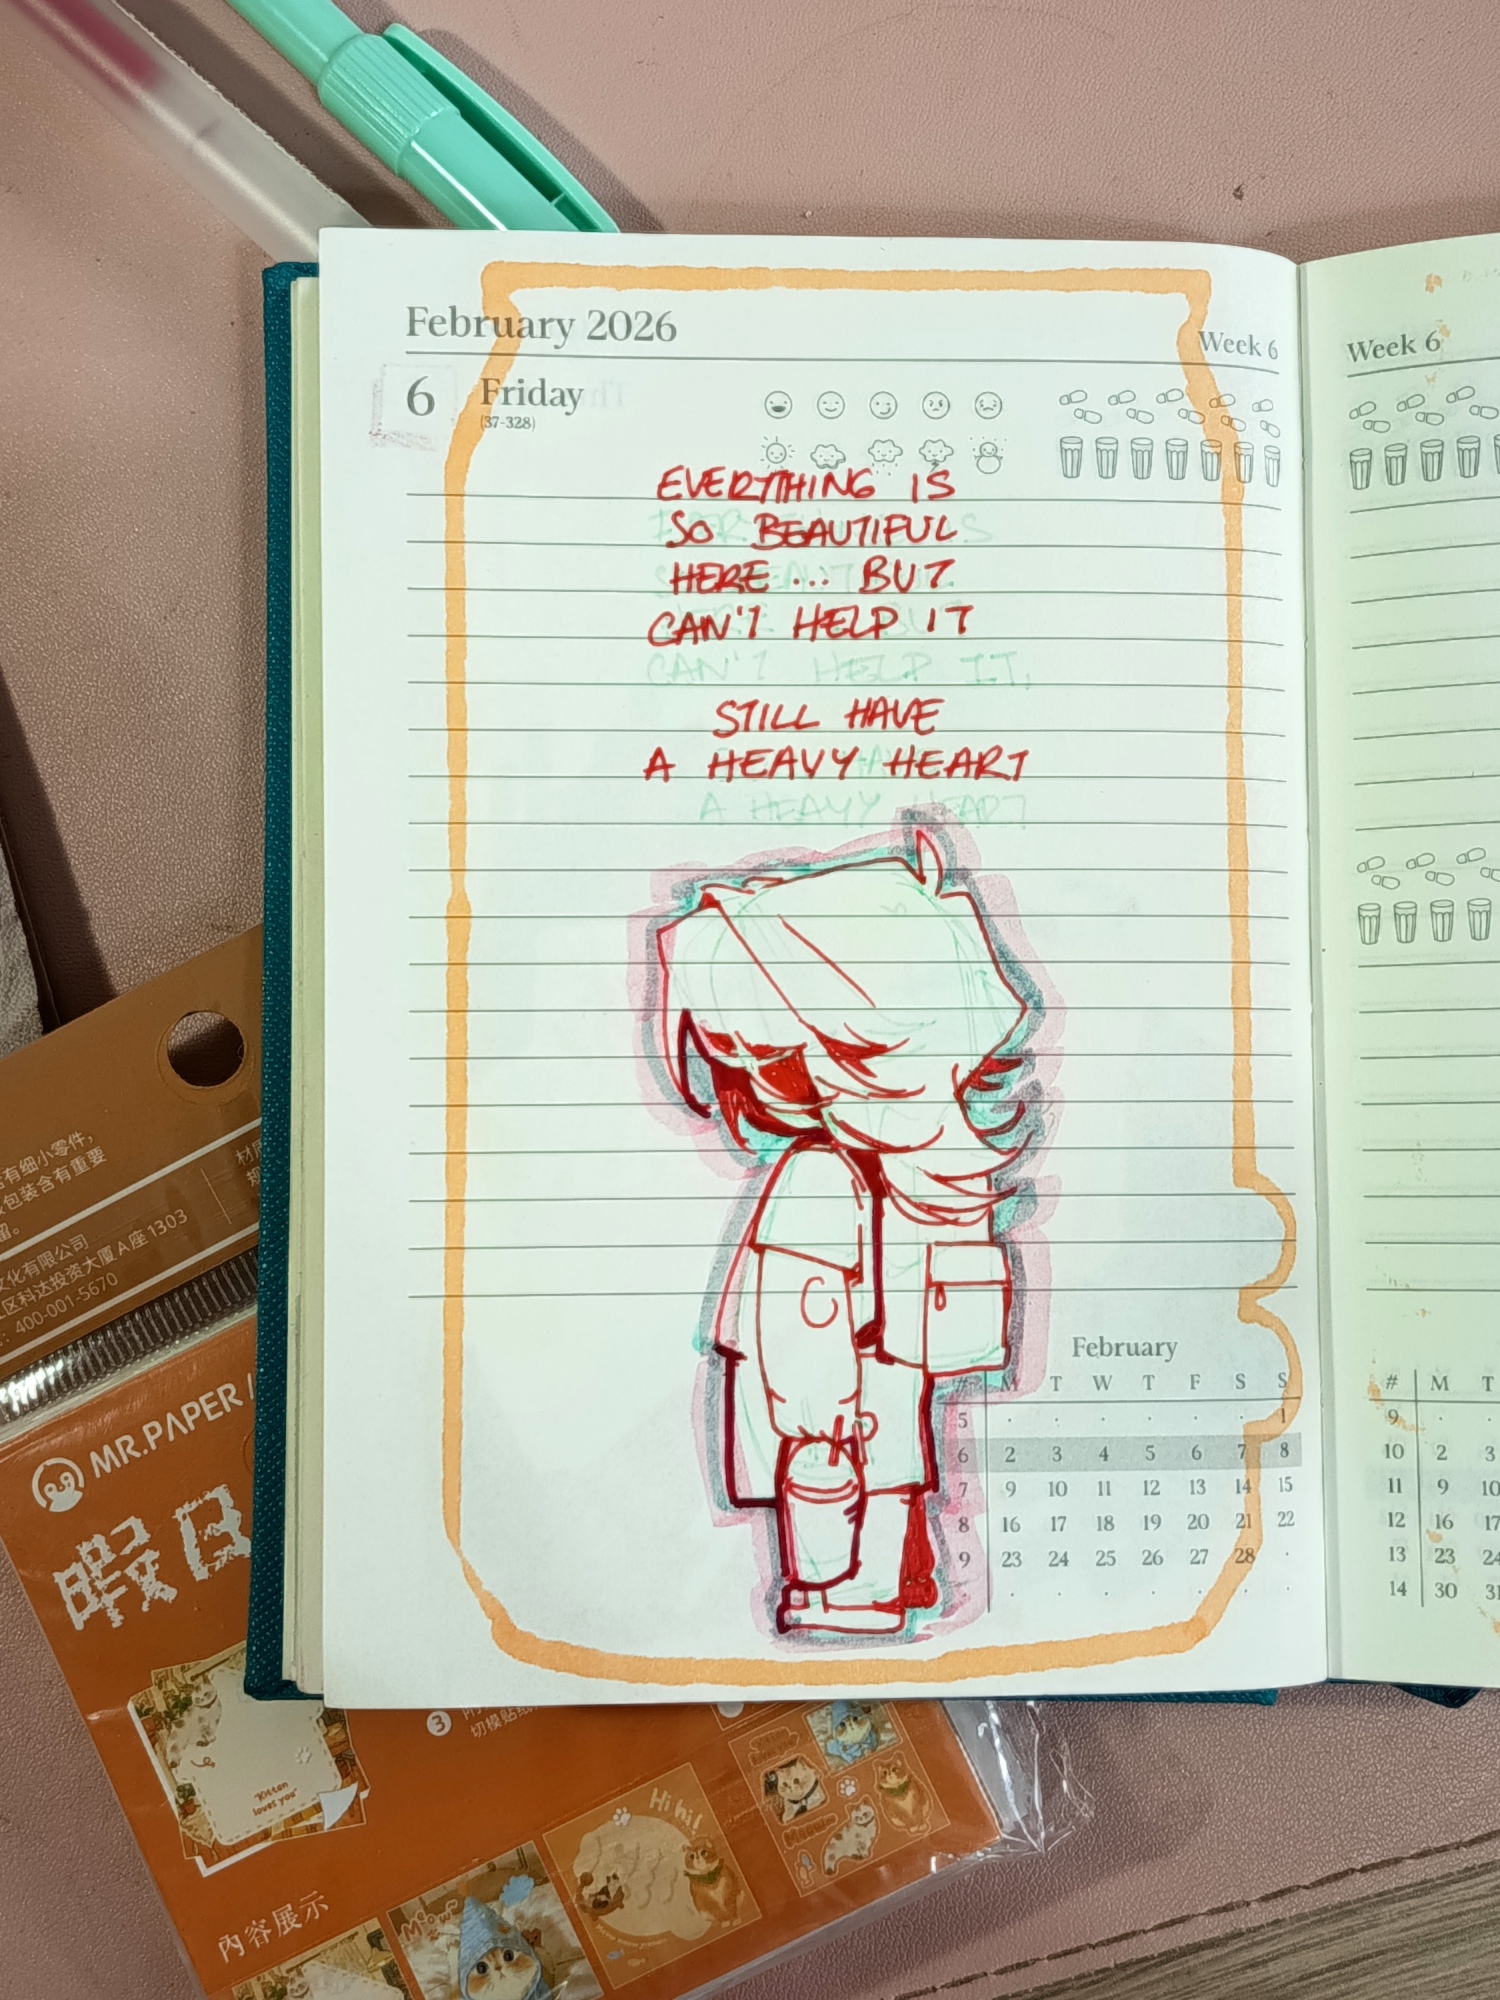 February 2026
Week 6
6 Friday
(37-328)
EVERYTHING IS
SO BEAUTIFUL
HERE ... BUT
CAN'T HELP IT
CAN'T HELP IT.
STILL HAVE
A HEAVY HEART
A HEAVY HEART
February
# M T W T F S S
5 · · · · · · 1
6 2 3 4 5 6 7 8
7 9 10 11 12 13 14 15
8 16 17 18 19 20 21 22
9 23 24 25 26 27 28 ·
Week 6
# M T
9 · ·
10 2 3
11 9 10
12 16 17
13 23 24
14 30 31
有细小零件,
包装含有重要
留。
文化有限公司
区科达投资大厦A座1303
: 400-001-5670
MR.PAPER
暇日
③
切模贴纸
"Kitten
loves you"
Hi hi!
Meow~
內容展示